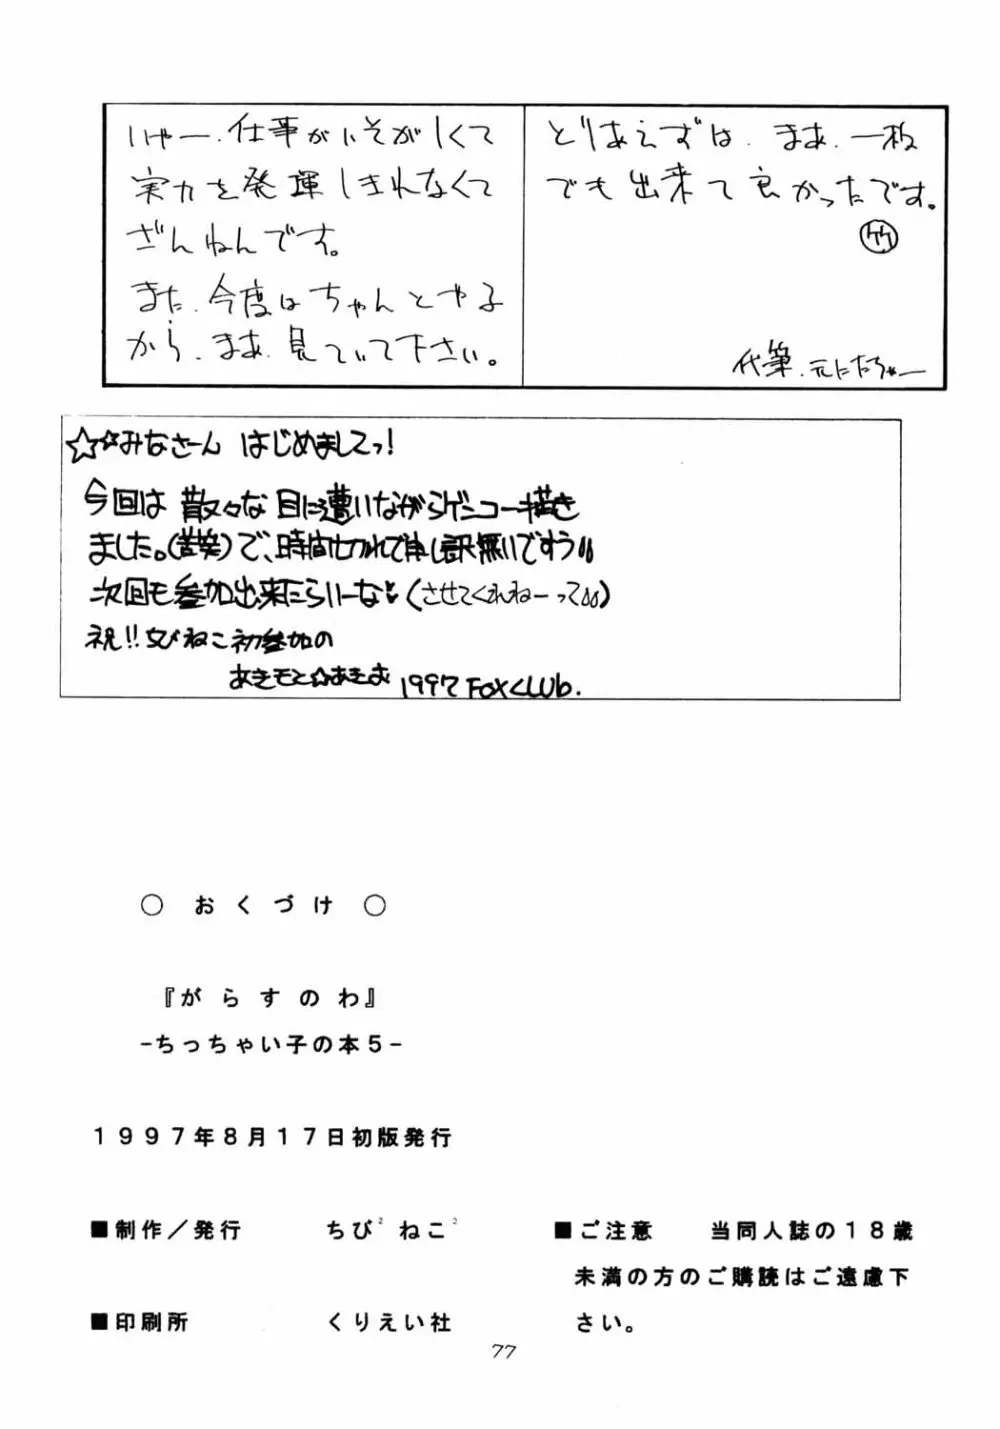 いやー、仕事がいそがしくて
実力を発揮しきれなくて
ざんねんです。
また、今度はちゃんとやる
から、まあ、見ていて下さい。
とりあえずは、まあ、一枚
でも出来て良かったです。
竹
代筆、元にたちゃー
☆☆みなさーん はじめましてっ!
今回は 散々な 目に遭いながらゲンコー描き
ました。(苦笑)で、時間切れで申し訳無いですぅ
次回も参加出来たらいーな♥(させてくれねーって)
祝!!ちびねこ初参加の
あきもと☆あきお 1997 FOXCLUb.
○ おくづけ ○
『がらすのわ』
-ちっちゃい子の本5-
1997年8月17日初版発行
■制作/発行 ちび²ねこ²
■印刷所 くりえい社
■ご注意 当同人誌の18歳
未満の方のご購読はご遠慮下
さい。
77